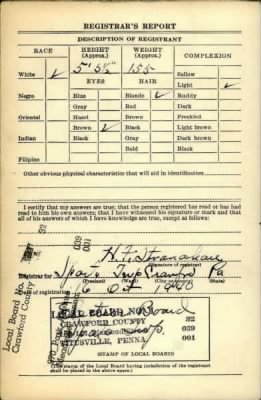 REGISTRAR'S REPORT
DESCRIPTION OF REGISTRANT
RACE HEIGHT (Approx.) WEIGHT (Approx.) COMPLEXION
5' 5½" 155
White ✓ EYES HAIR Sallow
Light ✓
Negro Blue Blonde ✓ Ruddy
Gray Red Dark
Oriental Hazel Brown Freckled
Brown ✓ Black Light brown
Indian Black Gray Dark brown
Bald Black
Filipino
Other obvious physical characteristics that will aid in identification
I certify that my answers are true; that the person registered has read or has had read to him his own answers; that I have witnessed his signature or mark and that all of his answers of which I have knowledge are true, except as follows:
32 039 001
H. F. Stranahan
(Signature of registrar)
Registrar for Sparta Twp Crawford Pa
(Precinct) (Ward) (State)
16 Oct 1940
Local Board No.
Crawford County
LOCAL BOARD NO.
CRAWFORD COUNTY 32
039
TITUSVILLE, PENNA 001
(STAMP OF LOCAL BOARD)
(The stamp of the Local Board having jurisdiction of the registrant shall be placed in the above space.)